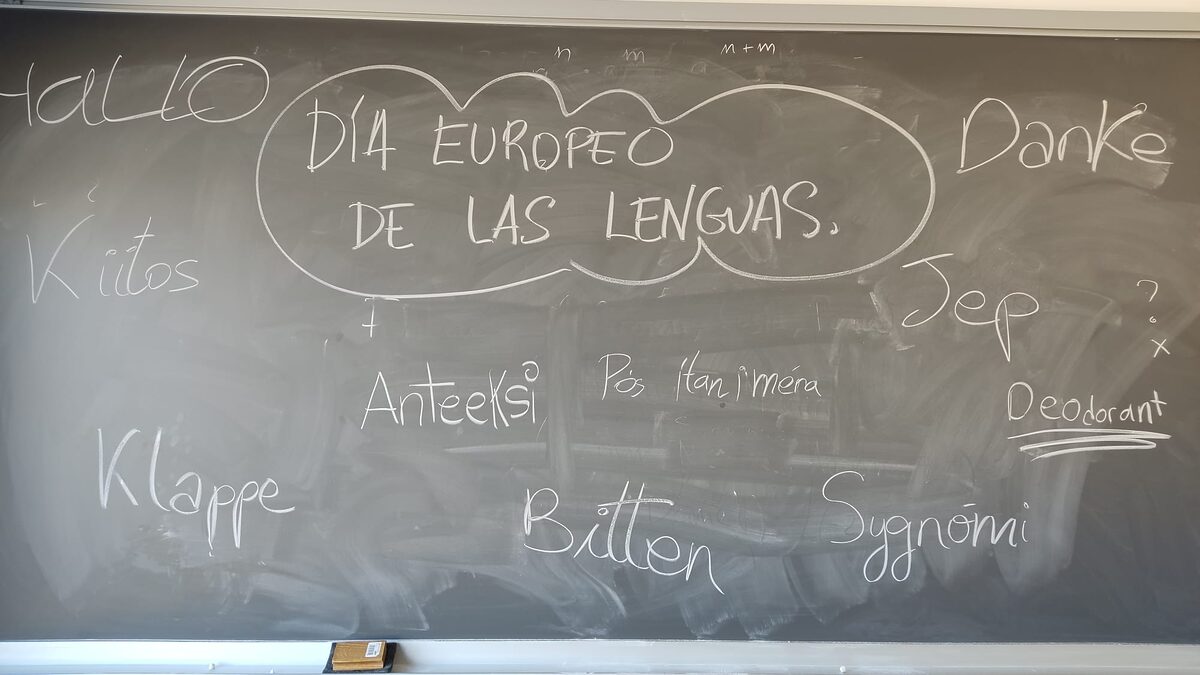 n m n+m
HaLLO
DÍA EUROPEO
DE LAS LENGUAS.
Danke
Kiitos
Jep
?
x
Anteeksi
Pós ítan i méra
Deodorant
Klappe
Bitten
Sygnómi